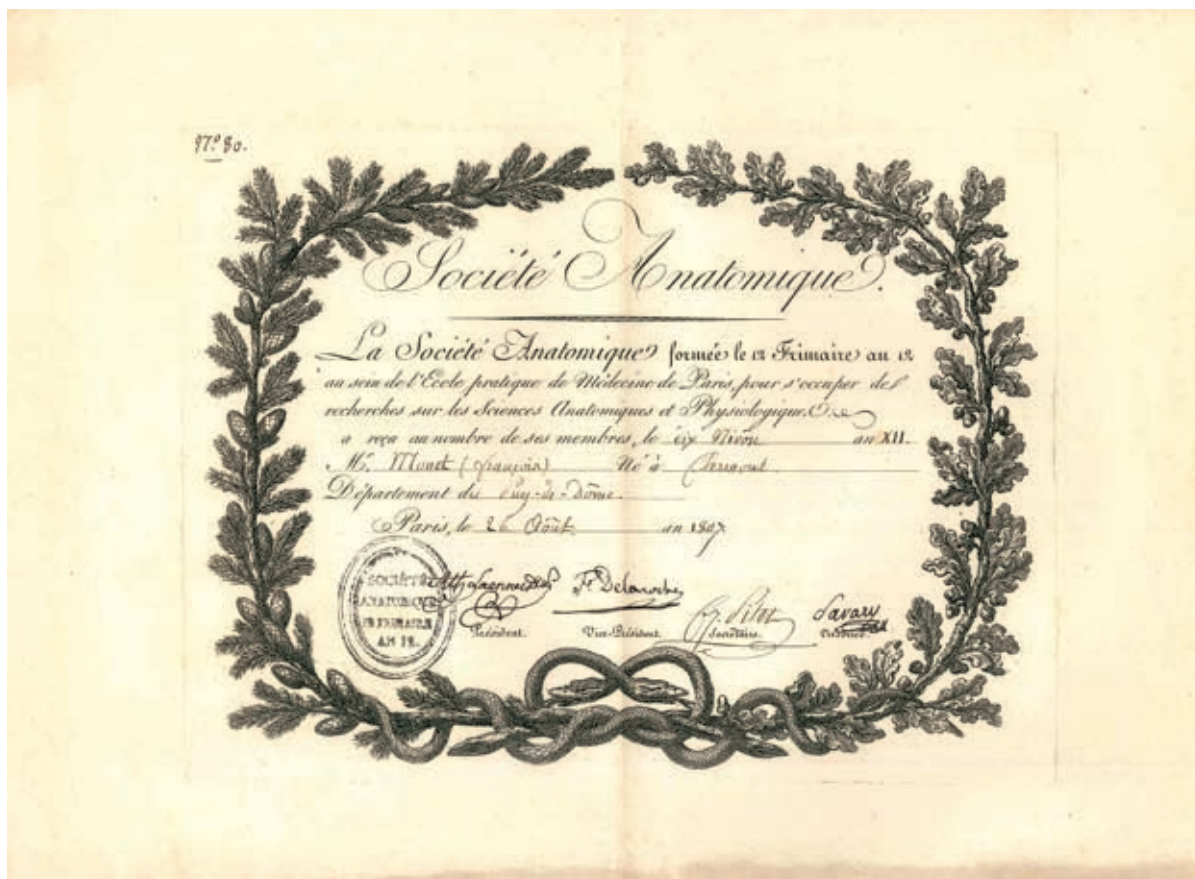 N.º 80.
Société Anatomique.
La Société Anatomique formée le 12 Frimaire an 12
au sein de l'Ecole pratique de Médecine de Paris, pour s'occuper de
recherches sur les Sciences Anatomiques et Physiologiques
a reçu au nombre de ses membres, le dix Nivôse an XII.
Mr. (françois) Né à
Département du Puy-de-Dôme
Paris, le 26 Août an 1807
SOCIÉTÉ
ANATOMIQUE
12 FRIMAIRE
AN 12.
Laennec Fr Delaroche Savary
Président. Vice-Président. Secrétaire. Trésorier.